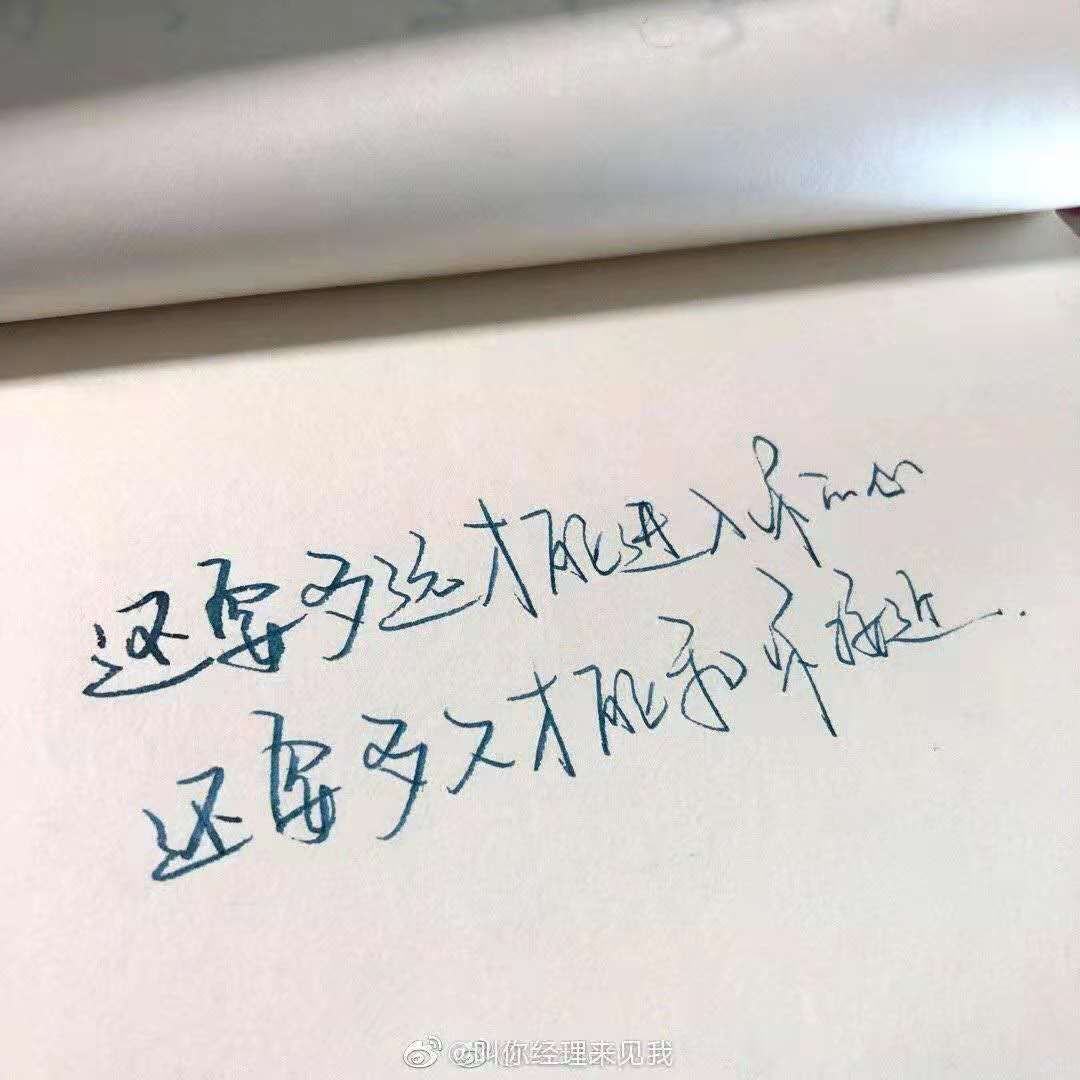 还要多远才能进入你的心
还要多久才能和你接近..
@叫你经理来见我